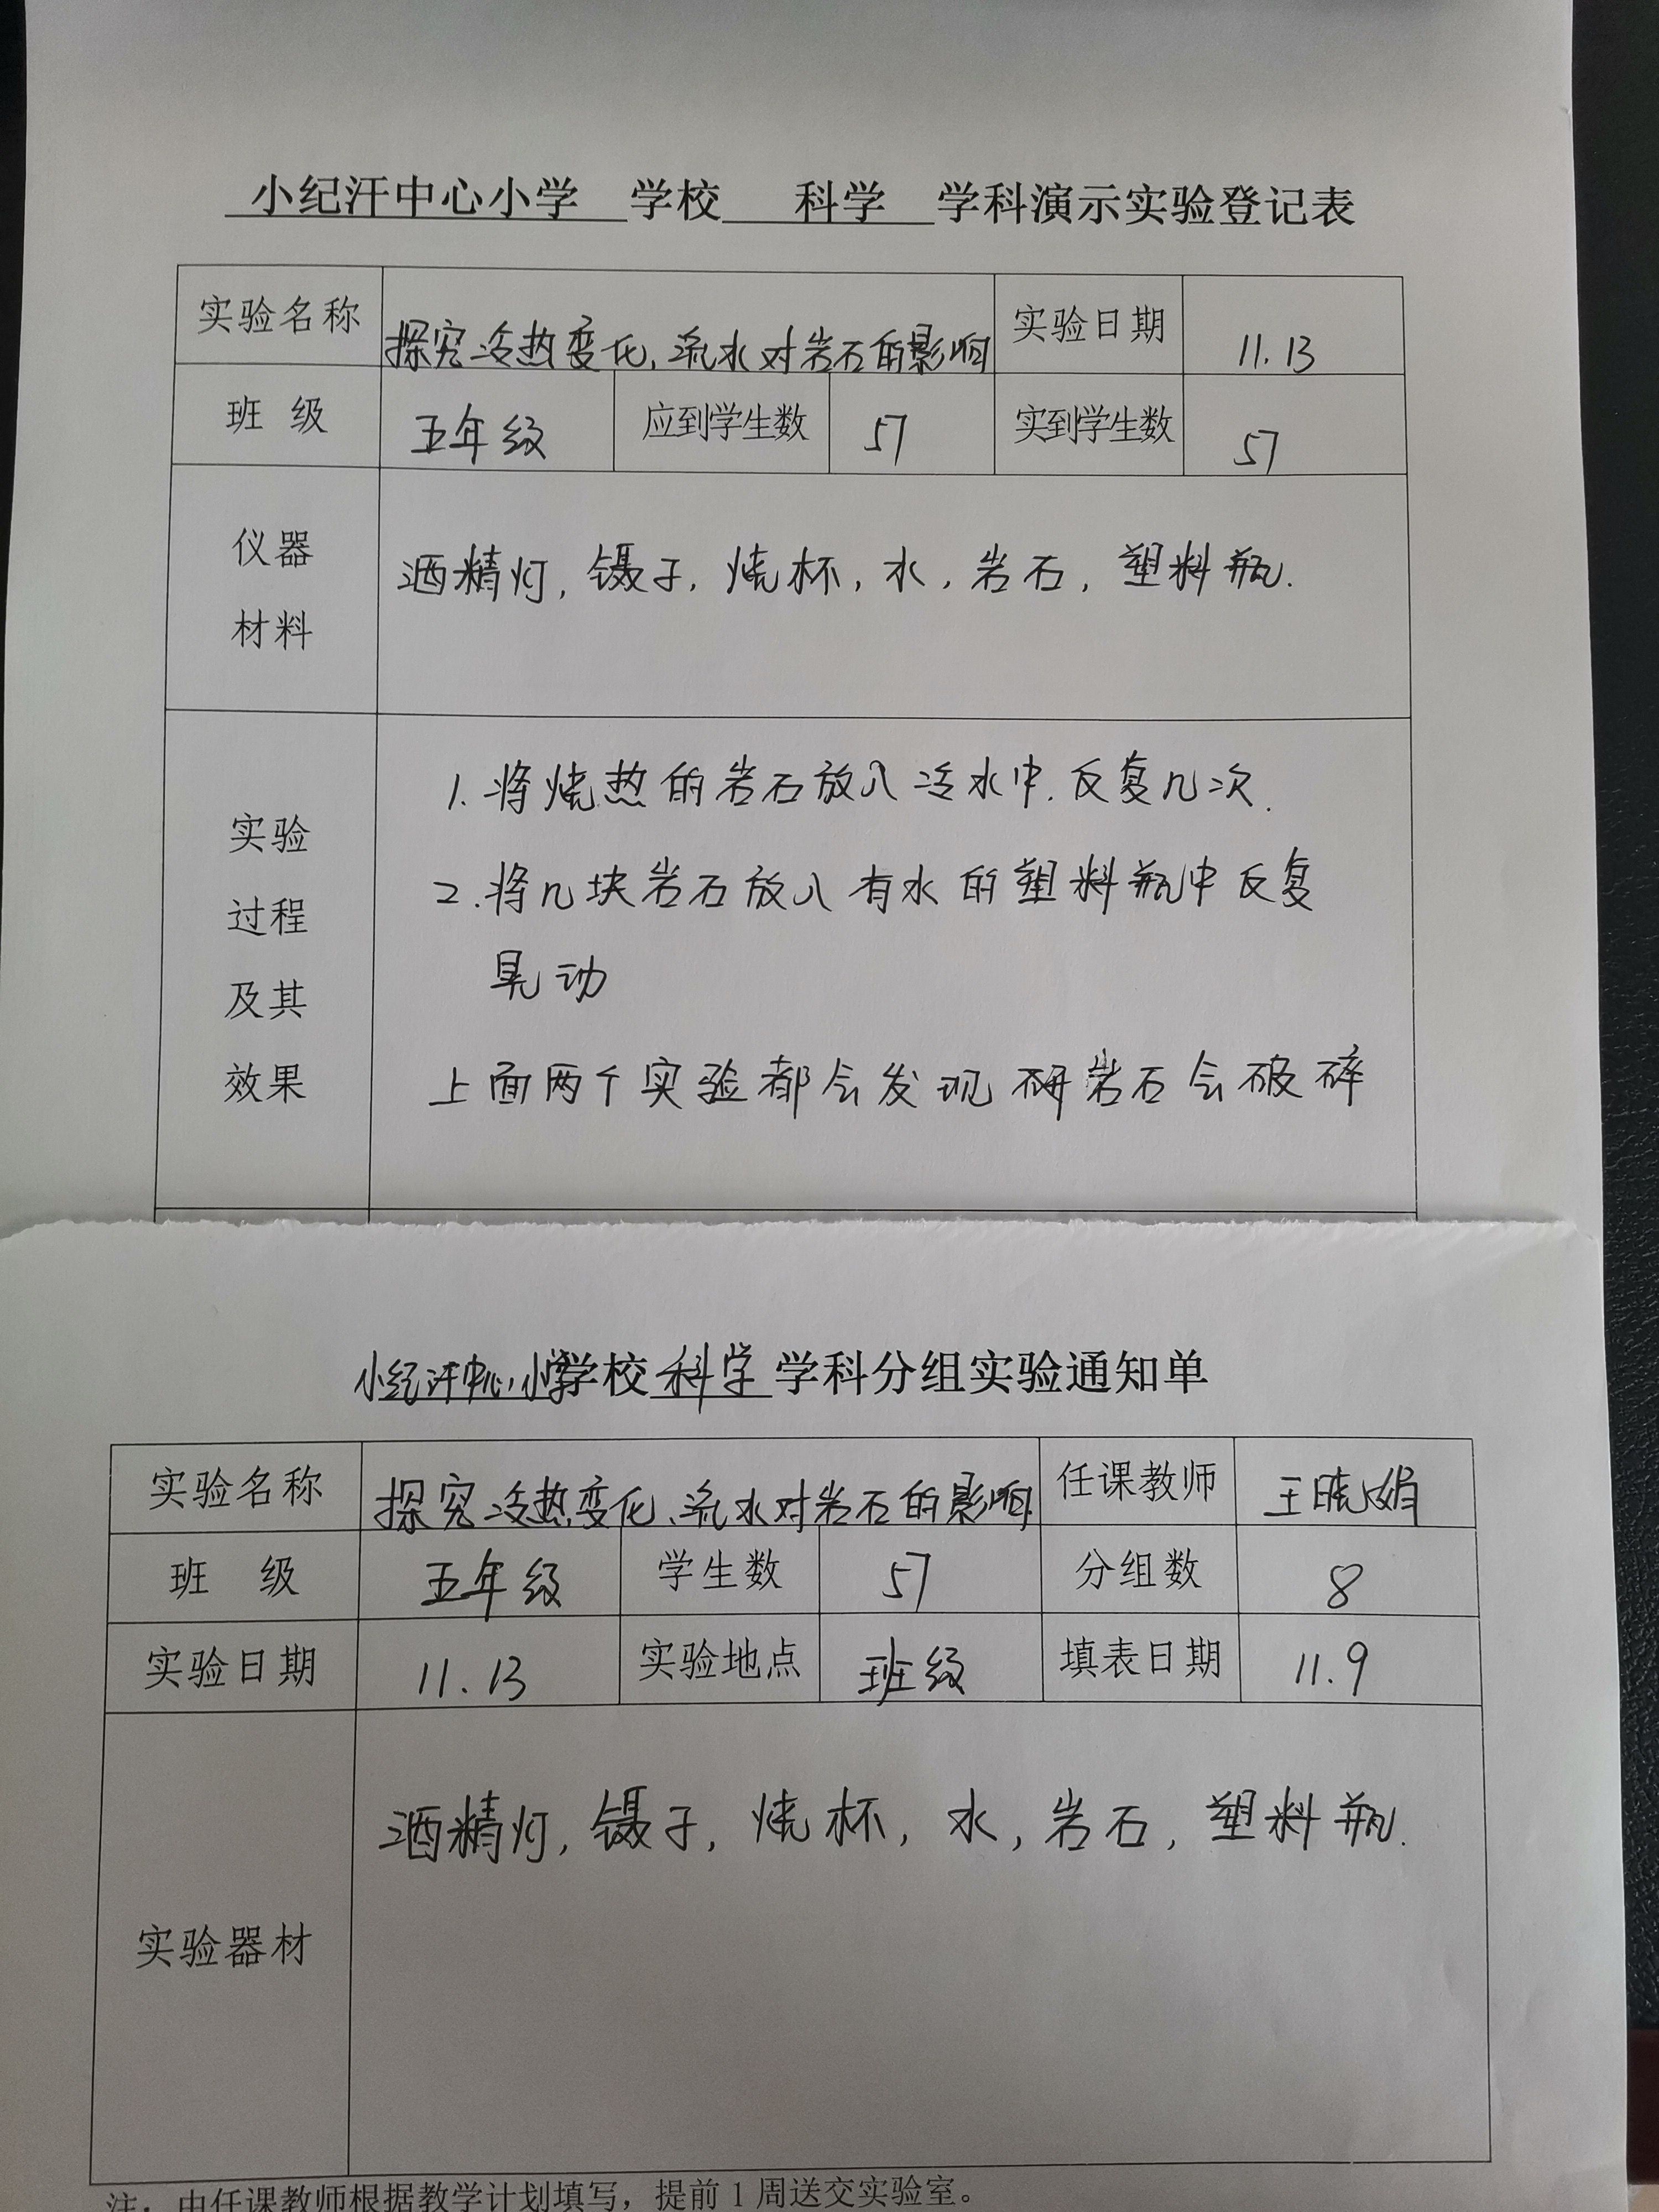 小纪汗中心小学 学校 科学 学科演示实验登记表
实验名称 探究冷热变化、流水对岩石的影响 实验日期 11.13
班 级 五年级 应到学生数 57 实到学生数 57
仪器
材料
酒精灯, 镊子, 烧杯, 水, 岩石, 塑料瓶.
实验
过程
及其
效果
1. 将烧热的岩石放入冷水中. 反复几次.
2. 将几块岩石放入有水的塑料瓶中反复
晃动
上面两个实验都会发现 岩石会破碎
小纪汗中心小学学校 科学 学科分组实验通知单
实验名称 探究冷热变化、流水对岩石的影响 任课教师 王晓娟
班 级 五年级 学生数 57 分组数 8
实验日期 11.13 实验地点 班级 填表日期 11.9
实验器材 酒精灯, 镊子, 烧杯, 水, 岩石, 塑料瓶.
注：由任课教师根据教学计划填写，提前1周送交实验室。